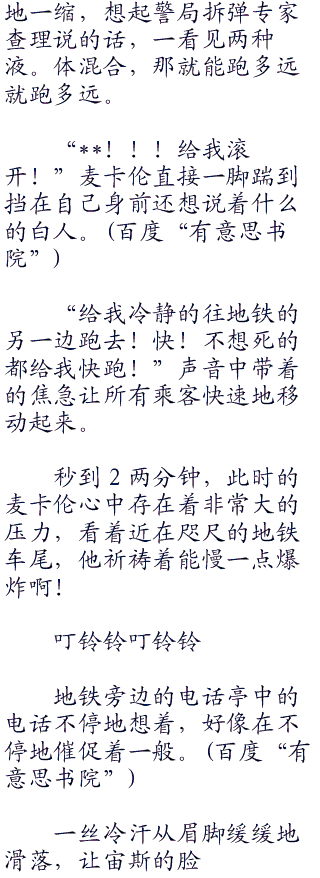 地一缩，想起警局拆弹专家
查理说的话，一看见两种
液。体混合，那就能跑多远
就跑多远。
“**！！！给我滚
开！”麦卡伦直接一脚踹到
挡在自己身前还想说着什么
的白人。(百度“有意思书
院”)
“给我冷静的往地铁的
另一边跑去！快！不想死的
都给我快跑！”声音中带着
的焦急让所有乘客快速地移
动起来。
秒到2两分钟，此时的
麦卡伦心中存在着非常大的
压力，看着近在咫尺的地铁
车尾，他祈祷着能慢一点爆
炸啊！
叮铃铃叮铃铃
地铁旁边的电话亭中的
电话不停地想着，好像在不
停地催促着一般。(百度“有
意思书院”)
一丝冷汗从眉脚缓缓地
滑落，让宙斯的脸